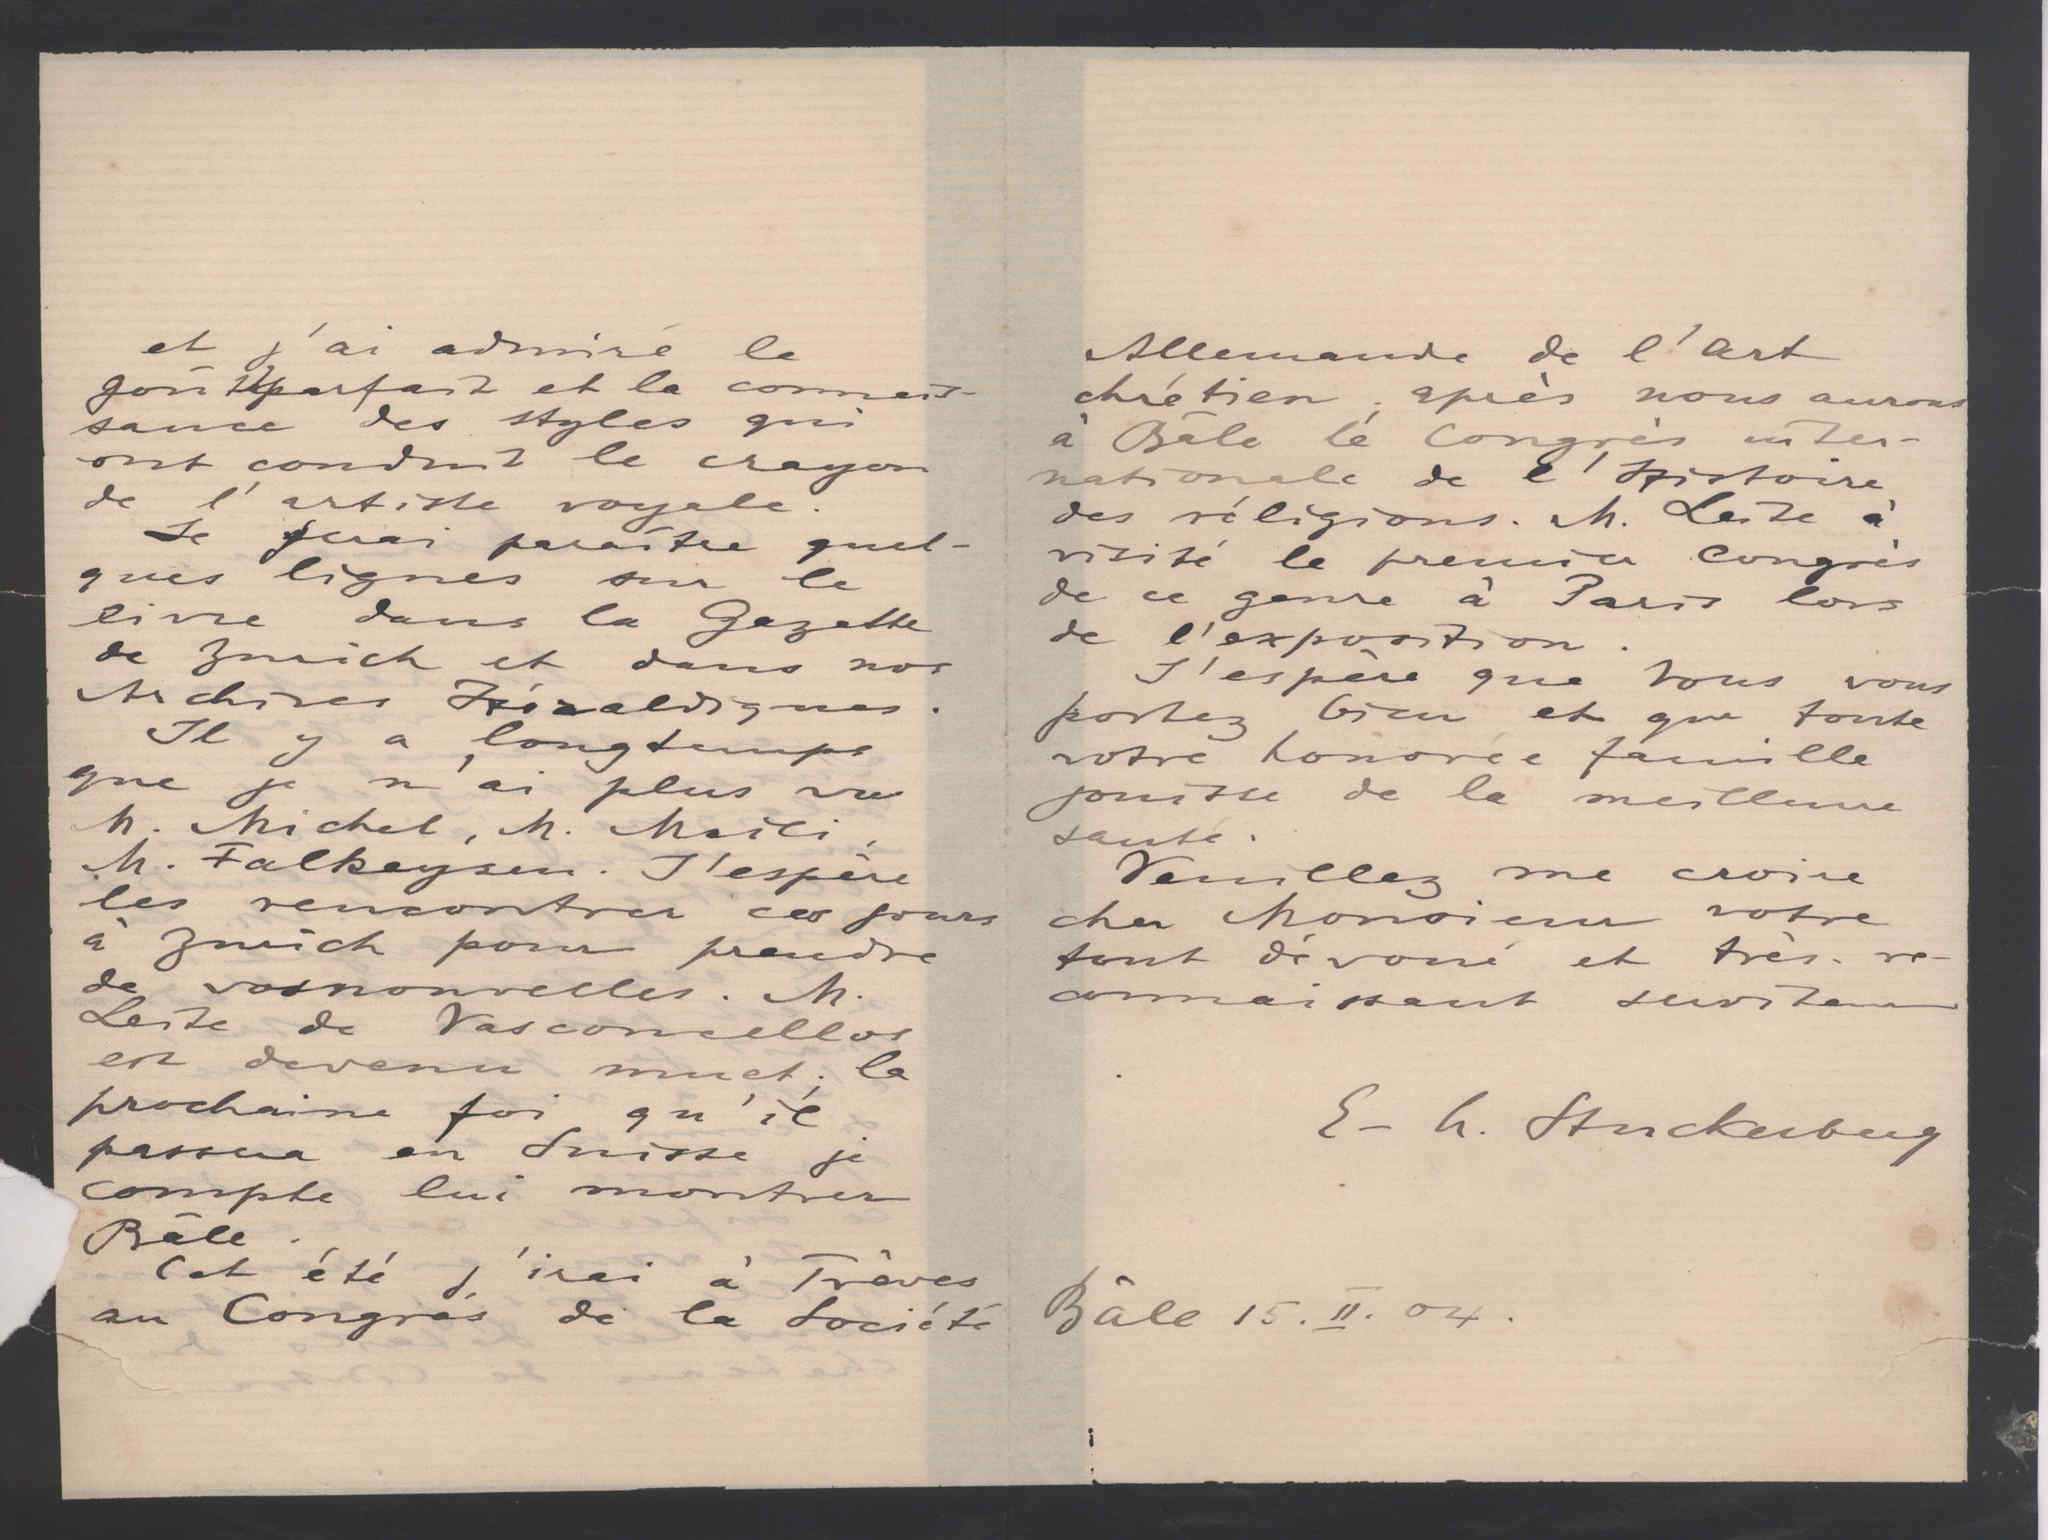 et j'ai admiré le
goût parfait et la connais-
sance des styles qui
ont conduit le crayon
de l'artiste royale.
Je ferai paraître quel-
ques lignes sur le
livre dans la Gazette
de Zurich et dans nos
Archives Héraldiques.
Il y a longtemps
que je n'ai plus vu
M. Michel, M. Meili,
M. Falkeysen. J'espère
les rencontrer ces jours
à Zurich pour prendre
de vos nouvelles. M.
Leite de Vasconcellos
est devenu muet; la
prochaine foi qu'il
passera en Suisse je
compte lui montrer
Bâle.
Cet été j'irai à Trèves
au Congrès de la Société
Allemande de l'Art
chrétien, après nous aurons
à Bâle le Congrès inter-
nationale de l'Histoire
des réligions. M. Leite à
visité le premier Congrès
de ce genre à Paris lors
de l'exposition.
J'espère que Vous vous
portez bien et que toute
votre honorée famille
jouisse de la meilleure
santé.
Veuillez me croire
cher Monsieur votre
tout dévoué et très-re-
connaissant serviteur
E- A. Stückelberg
Bâle 15. II. 04.